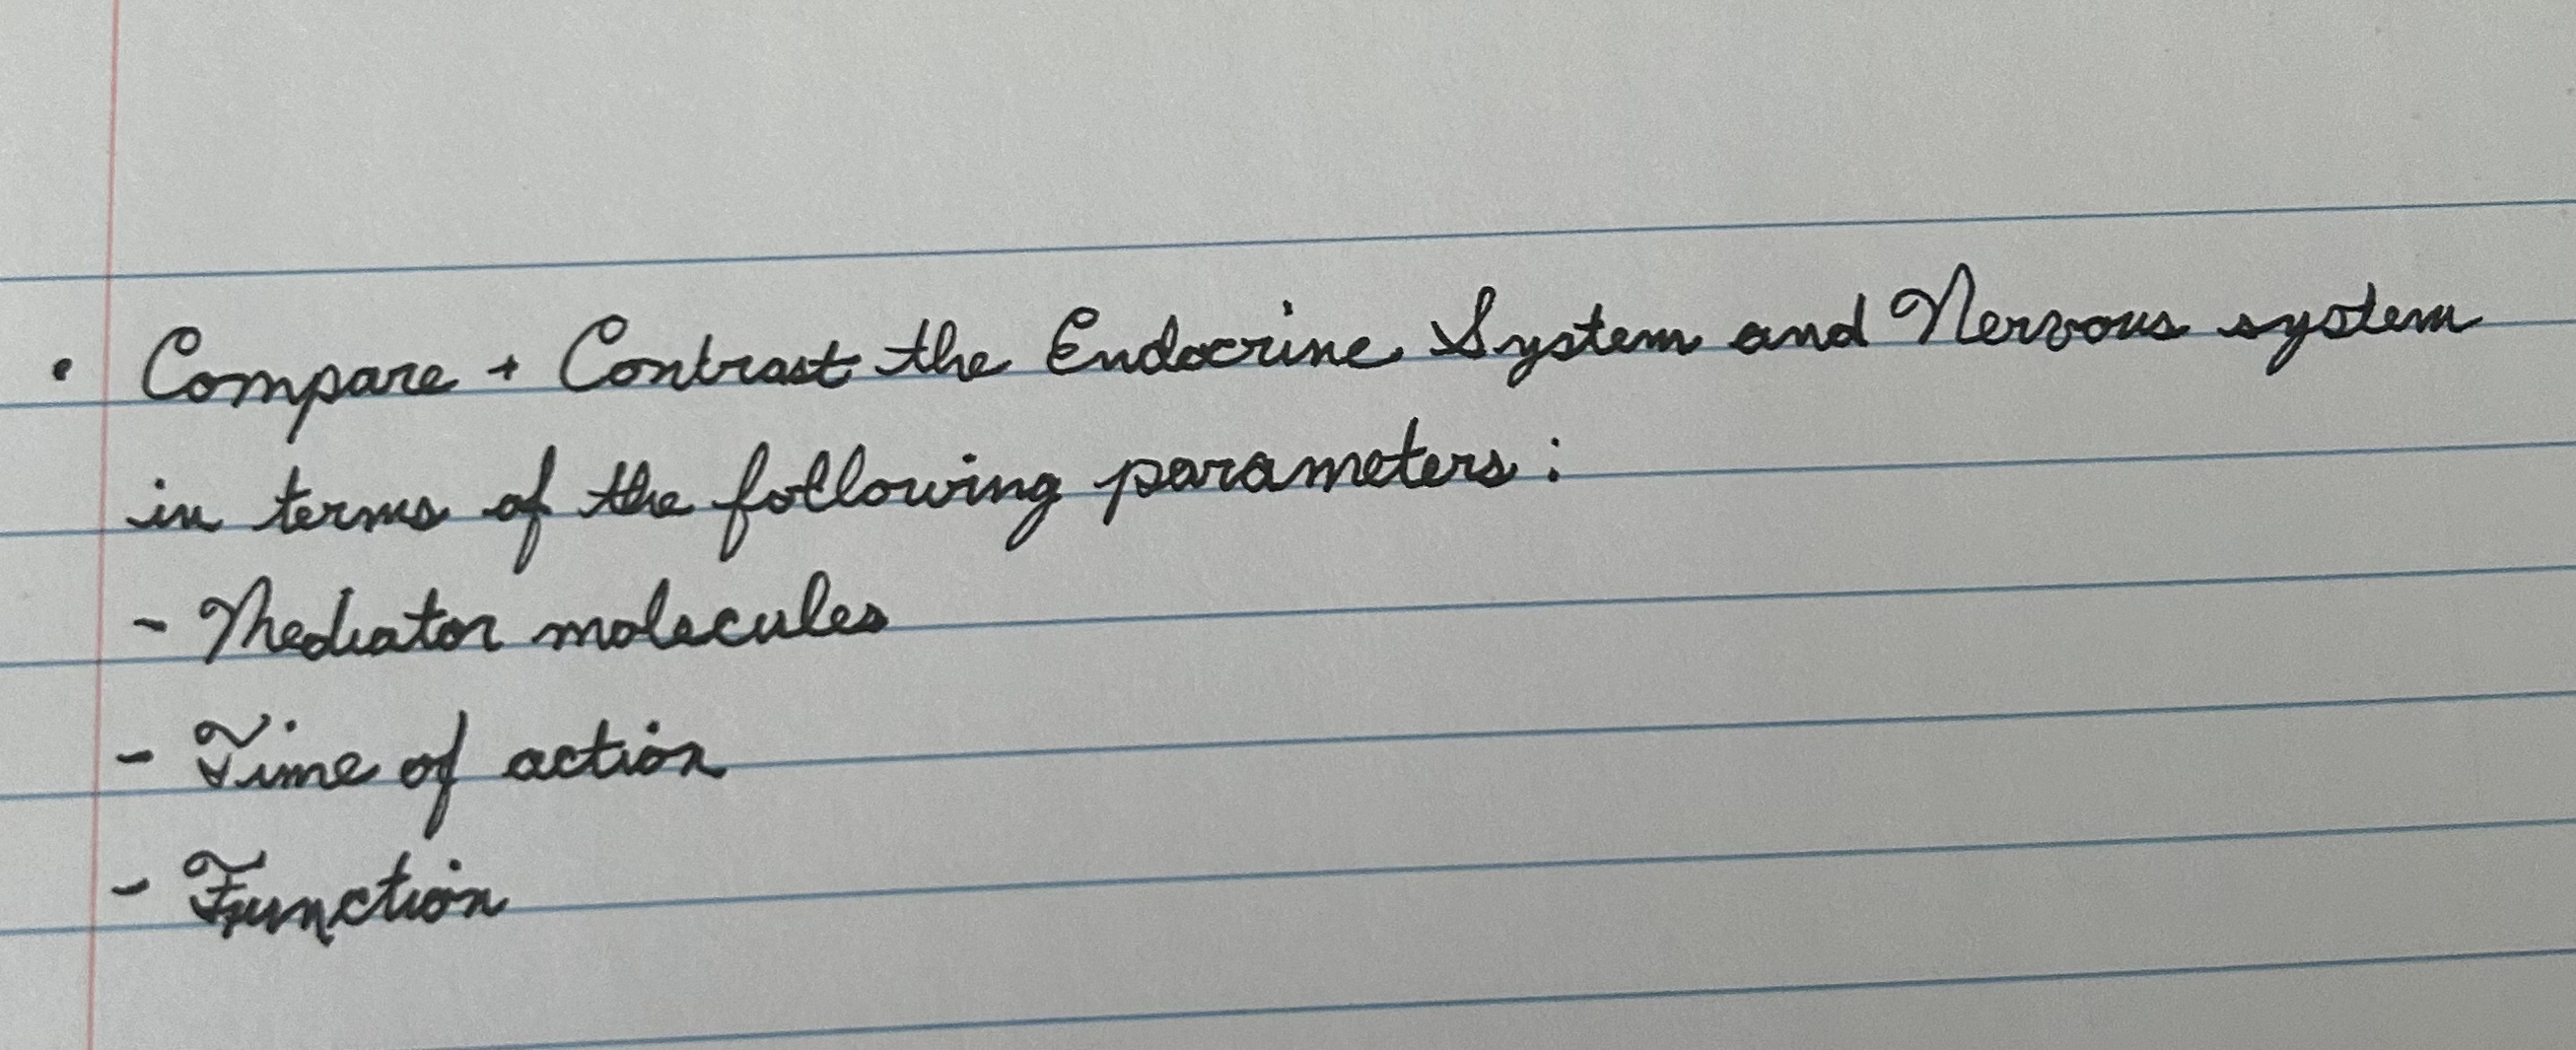 • Compare + Contrast the Endocrine System and Nervous system
in terms of the following parameters:
- Mediator molecules
- Time of action
- Function